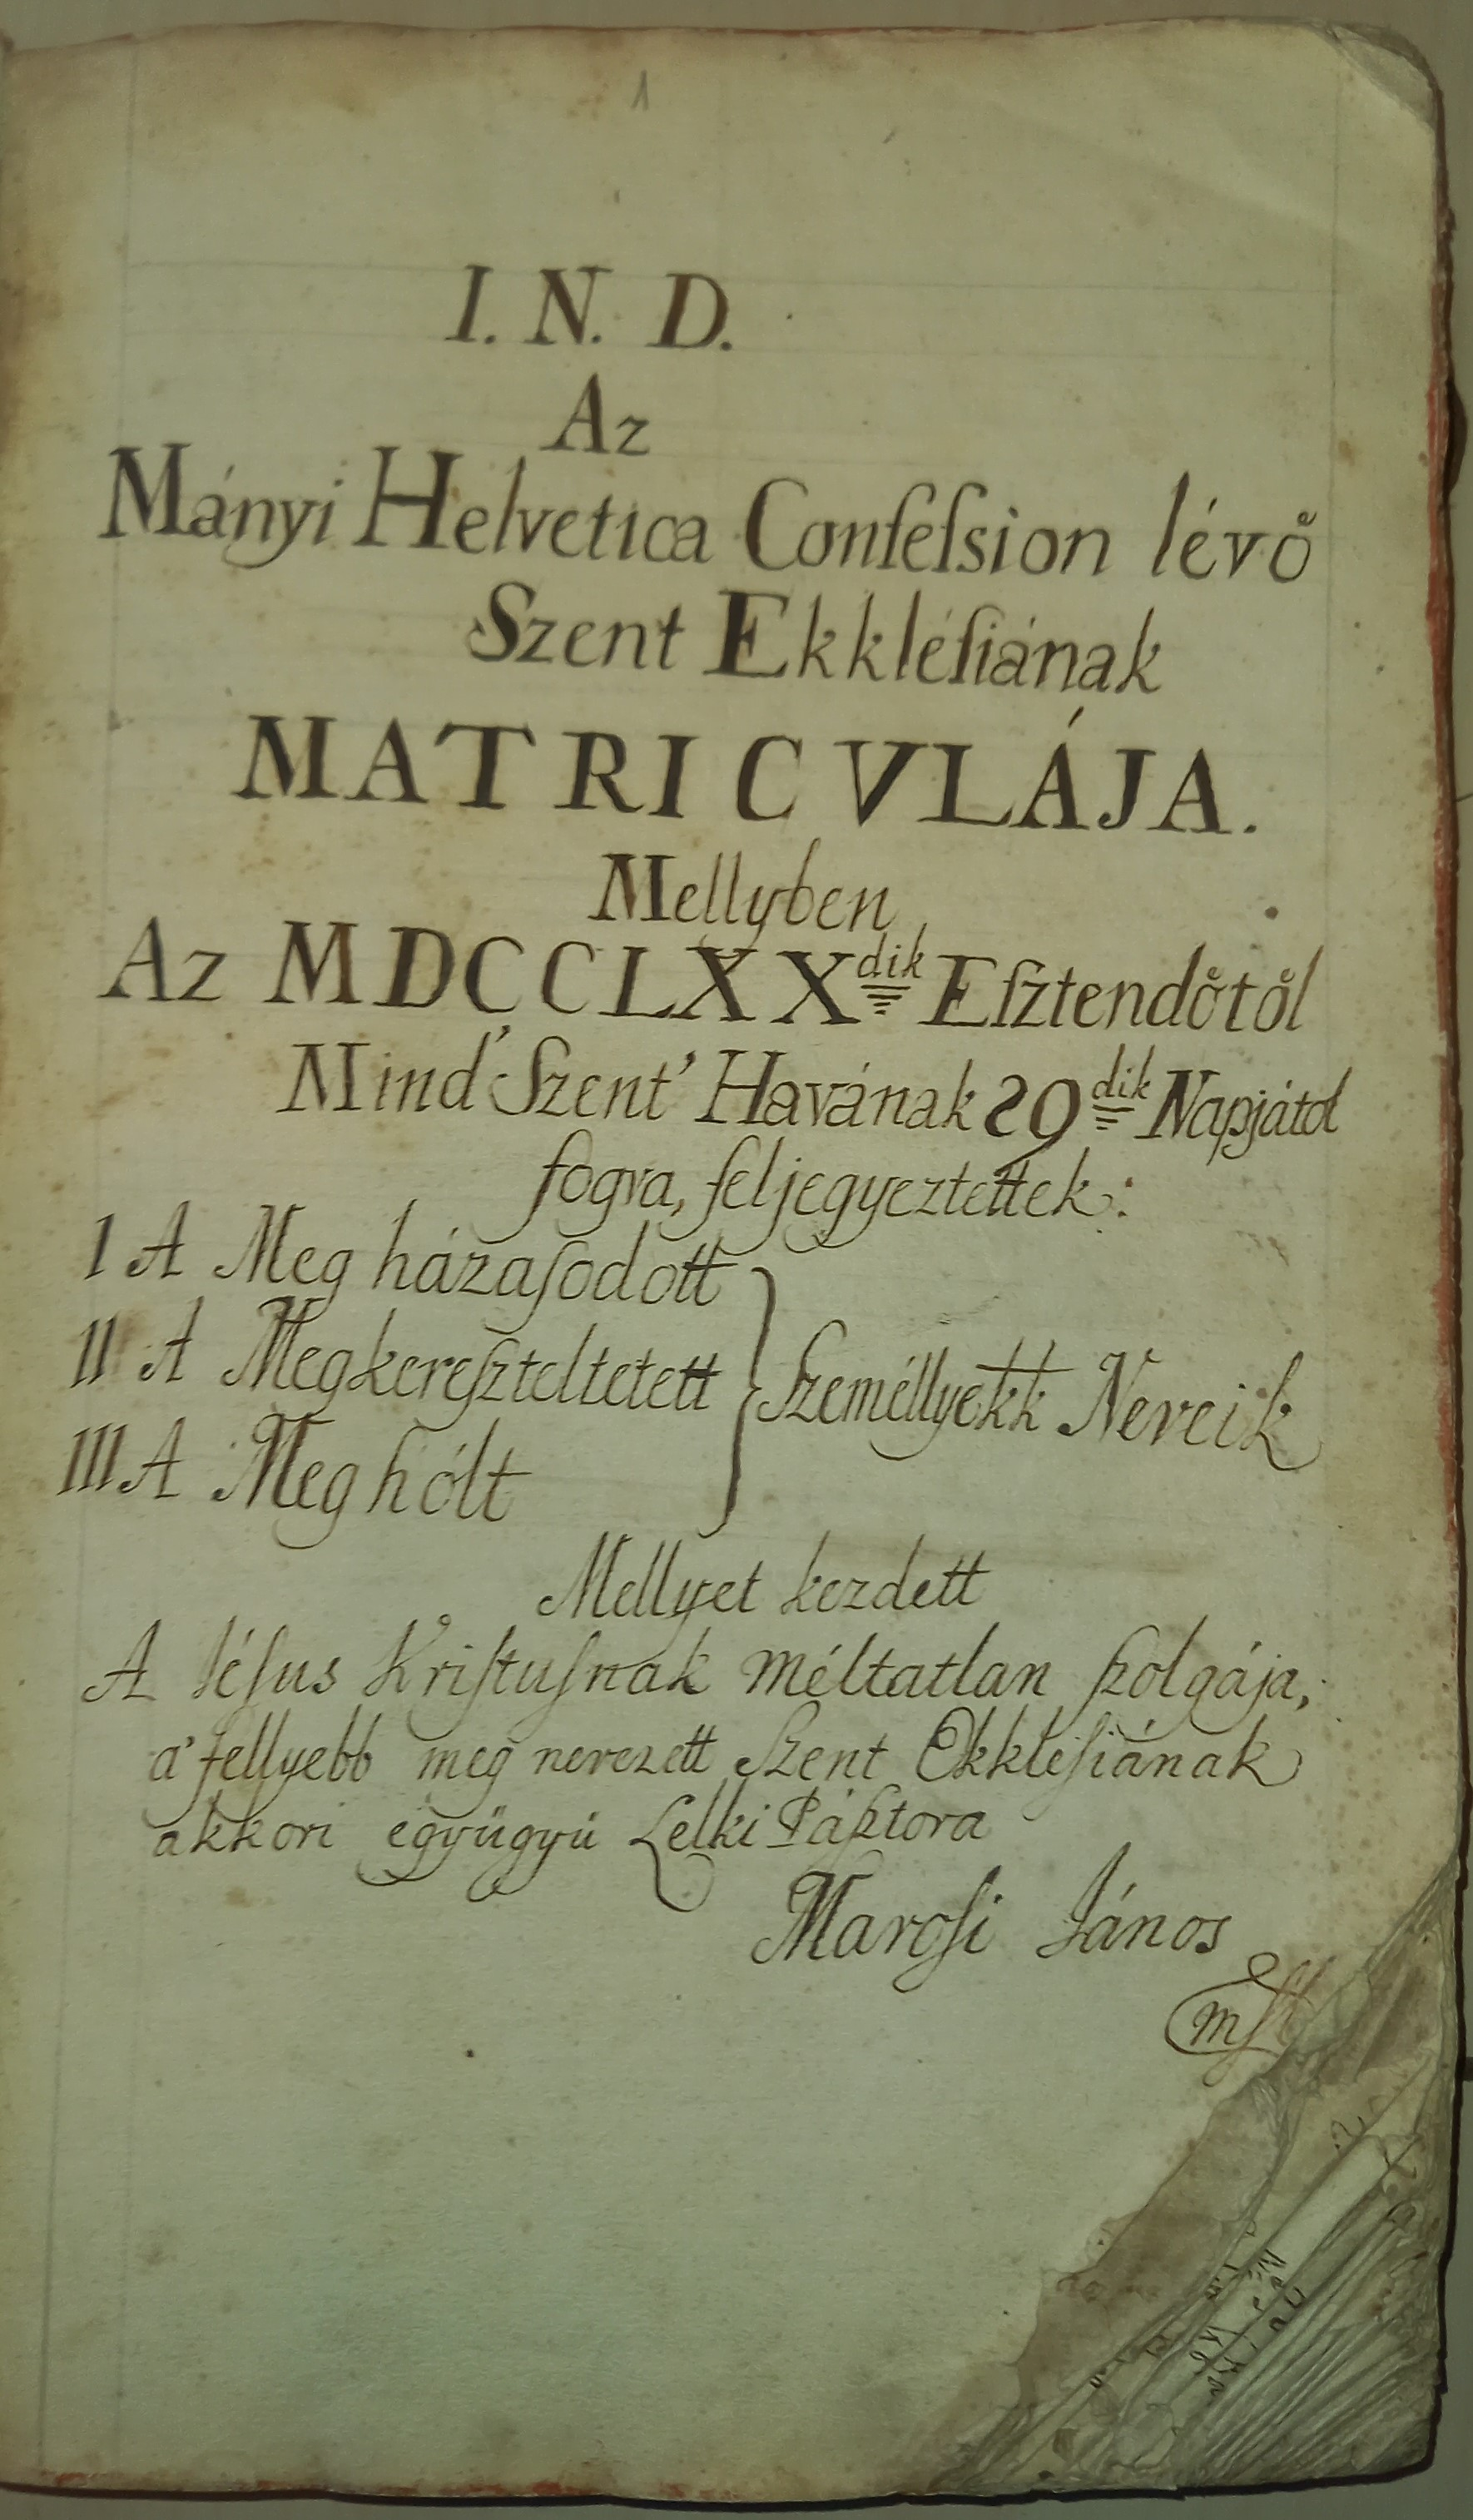 1
I. N. D.
Az
Mányi Helvetica Confeſsion lévő
Szent Ekkléſiának
MATRICVLÁJA.
Mellyben
Az MDCCLXXdik Eſztendőtől
Mind' Szent' Havának 29dik Napjátol
fogva, feljegyeztettek:
I A Meg házaſodott
II A Megkereſzteltetett } Személlyekk Neveik
III A Meg hólt
Mellyet kezdett
A Jéſus Kriſtuſnak méltatlan ſzolgája,
a' fellyebb meg nevezett Szent Ekkléſiának
akkori együgyü Lelki Páſztora
Maroſi János